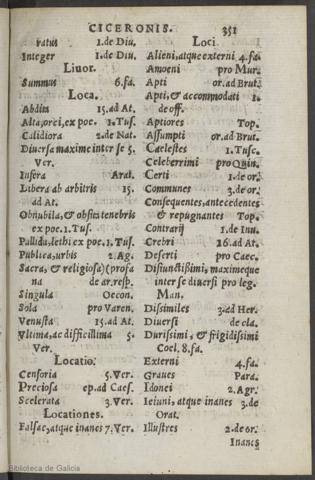 CICERONIS. 351
ratus 1.de Diu.
Integer 1.de Diu.
Liuor.
Summus 6.fa.
Loca.
Abdita 15.ad At.
Alta,orci,ex poe. 1.Tus.
Calidiora 2.de Nat.
Diuersa maxime inter se 5.
Ver.
Infera Arat.
Libera ab arbitris 15.
ad At.
Obnubila,& obsita tenebris
ex poe.1.Tus.
Pallida,lethi ex poe.1.Tus.
Publica,urbis 2.Ag.
Sacra,& religiosa)(profa
na de ar.resp.
Singula Oecon.
Sola pro Varen.
Venusta 15.ad At.
Vltima,ac difficillima 5.
Ver.
Locatio.
Censoria 5.Ver.
Preciosa ep.ad Caes.
Scelerata 3.Ver.
Locationes.
Falsae,atque inanes 7.Ver.
Loci
Alieni,atque externi 4.fa.
Amoeni pro Mur.
Apti or.ad Brut.
Apti,& accommodati 1.
de off.
Aptiores Top.
Assumpti or.ad Brut.
Caelestes 1.Tusc.
Celeberrimi pro Quin.
Certi 1.de or.
Communes 3.de or.
Consequentes,antecedentes
& repugnantes Top.
Contrarij 1.de Inu.
Crebri 16.ad At.
Deserti pro Caec.
Disiunctissimi, maximeque
inter se diuersi pro leg.
Man.
Dissimiles 3.ad Her.
Diuersi de cla.
Durissimi, & frigidissimi
Coel.8.fa.
Externi 4.fa.
Graues Para.
Idonei 2.Agr.
Ieiuni,atque inanes 3.de
Orat.
Illustres 2.de or.
Inanes
Biblioteca de Galicia